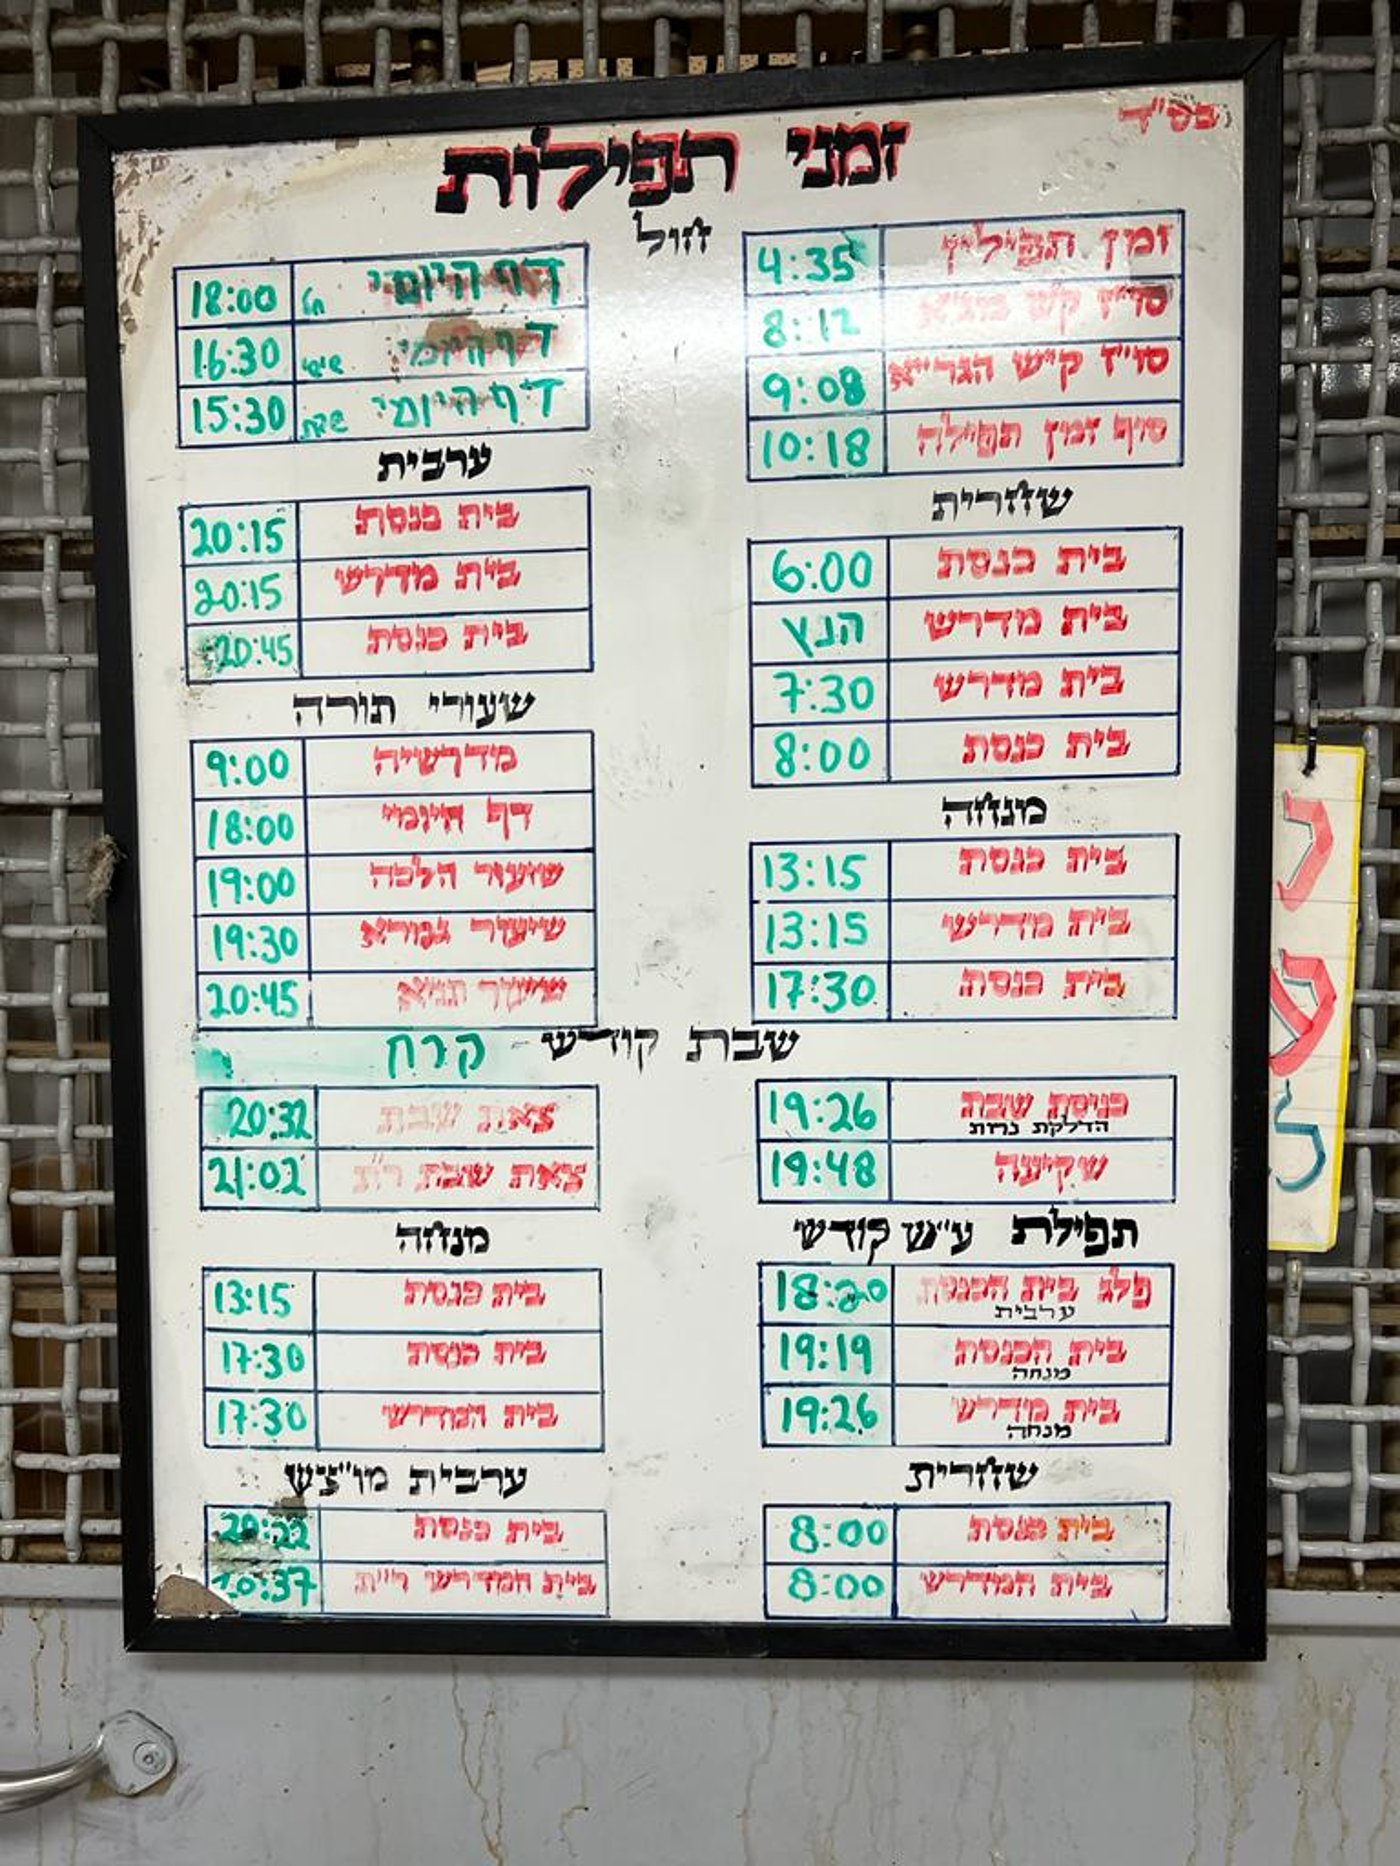 בס"ד
זמני תפילות
חול
זמן תפילין 4:35
סו"ז ק"ש מג"א 8:12
סו"ז ק"ש הגר"א 9:08
סוף זמן תפילה 10:18
שחרית
בית כנסת 6:00
בית מדרש הנץ
בית מדרש 7:30
בית כנסת 8:00
מנחה
בית כנסת 13:15
בית מדרש 13:15
בית כנסת 17:30
דף היומי חל 18:00
דף היומי שישי 16:30
דף היומי שבת 15:30
ערבית
בית כנסת 20:15
בית מדרש 20:15
בית כנסת 20:45
שעורי תורה
מדרשיה 9:00
דף היומי 18:00
שיעור הלכה 19:00
שיעור גמורא 19:30
שיעור תניא 20:45
שבת קודש קרח
כניסת שבת 19:26
הדלקת נרות
שקיעה 19:48
תפילת ע"ש קודש
פלג בית הכנסת 18:20
ערבית
בית הכנסת 19:19
מנחה
בית מדרש 19:26
מנחה
שחרית
בית כנסת 8:00
בית המדרש 8:00
צאת שבת 20:32
צאת שבת ר"ת 21:02
מנחה
בית כנסת 13:15
בית כנסת 17:30
בית המדרש 17:30
ערבית מו"צש
בית כנסת 20:22
בית המדרש ר"ת 20:37